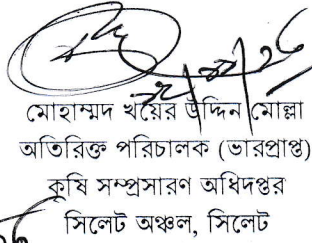 মোহাম্মদ খয়ের উদ্দিন মোল্লা
অতিরিক্ত পরিচালক (ভারপ্রাপ্ত)
কৃষি সম্প্রসারণ অধিদপ্তর
সিলেট অঞ্চল, সিলেট